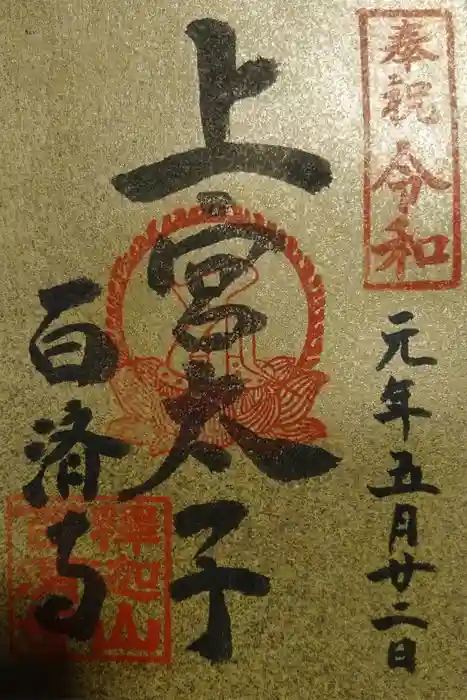 奉祝 令和
元年五月廿二日
上宮太子
百済寺
釋迦山
百済寺